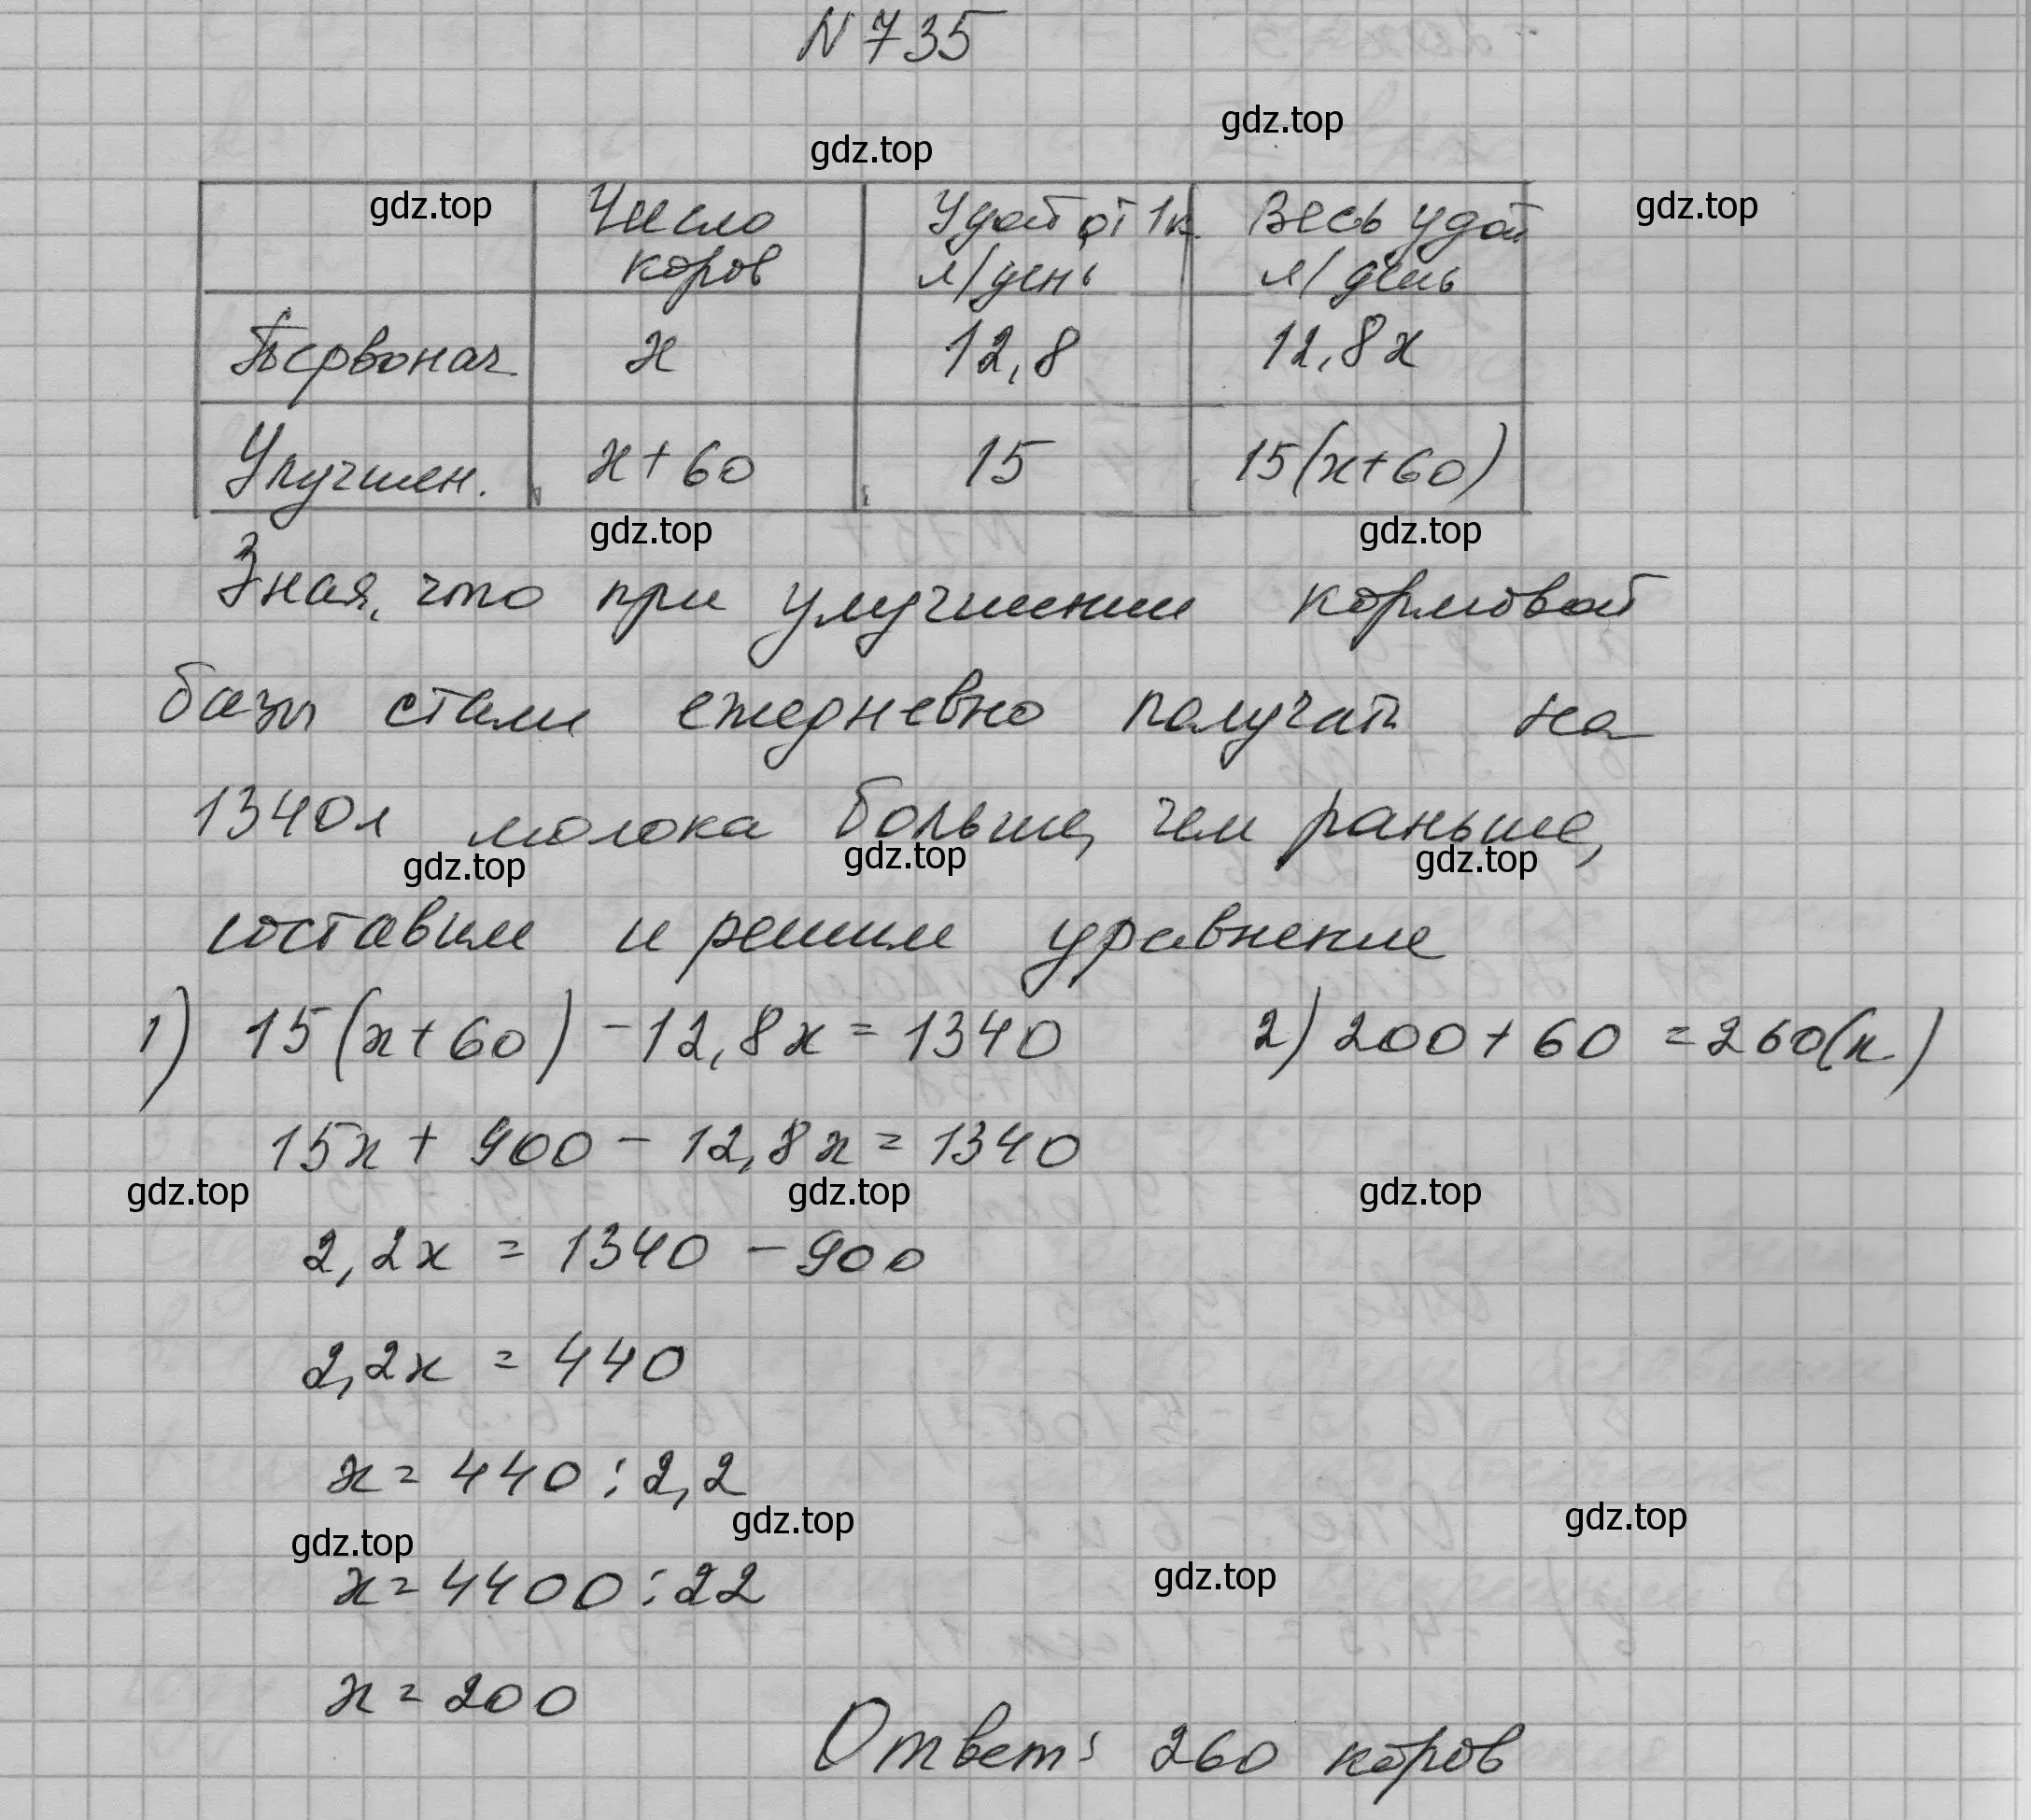 N 735
gdz.top
gdz.top
gdz.top
gdz.top
Число коров
Удой от 1к. л/день
Весь удой л/день
Первонач.
x
12,8
12,8x
Улучшен.
x+60
15
15(x+60)
gdz.top
gdz.top
Зная, что при улучшении кормовой
базы стали ежедневно получать на
1340л молока больше, чем раньше,
gdz.top
gdz.top
gdz.top
составим и решим уравнение
1) 15(x+60) - 12,8x = 1340
2) 200 + 60 = 260(к.)
15x + 900 - 12,8x = 1340
gdz.top
gdz.top
gdz.top
2,2x = 1340 - 900
2,2x = 440
x = 440 : 2,2
gdz.top
gdz.top
gdz.top
x = 4400 : 22
gdz.top
x = 200
Ответ: 260 коров